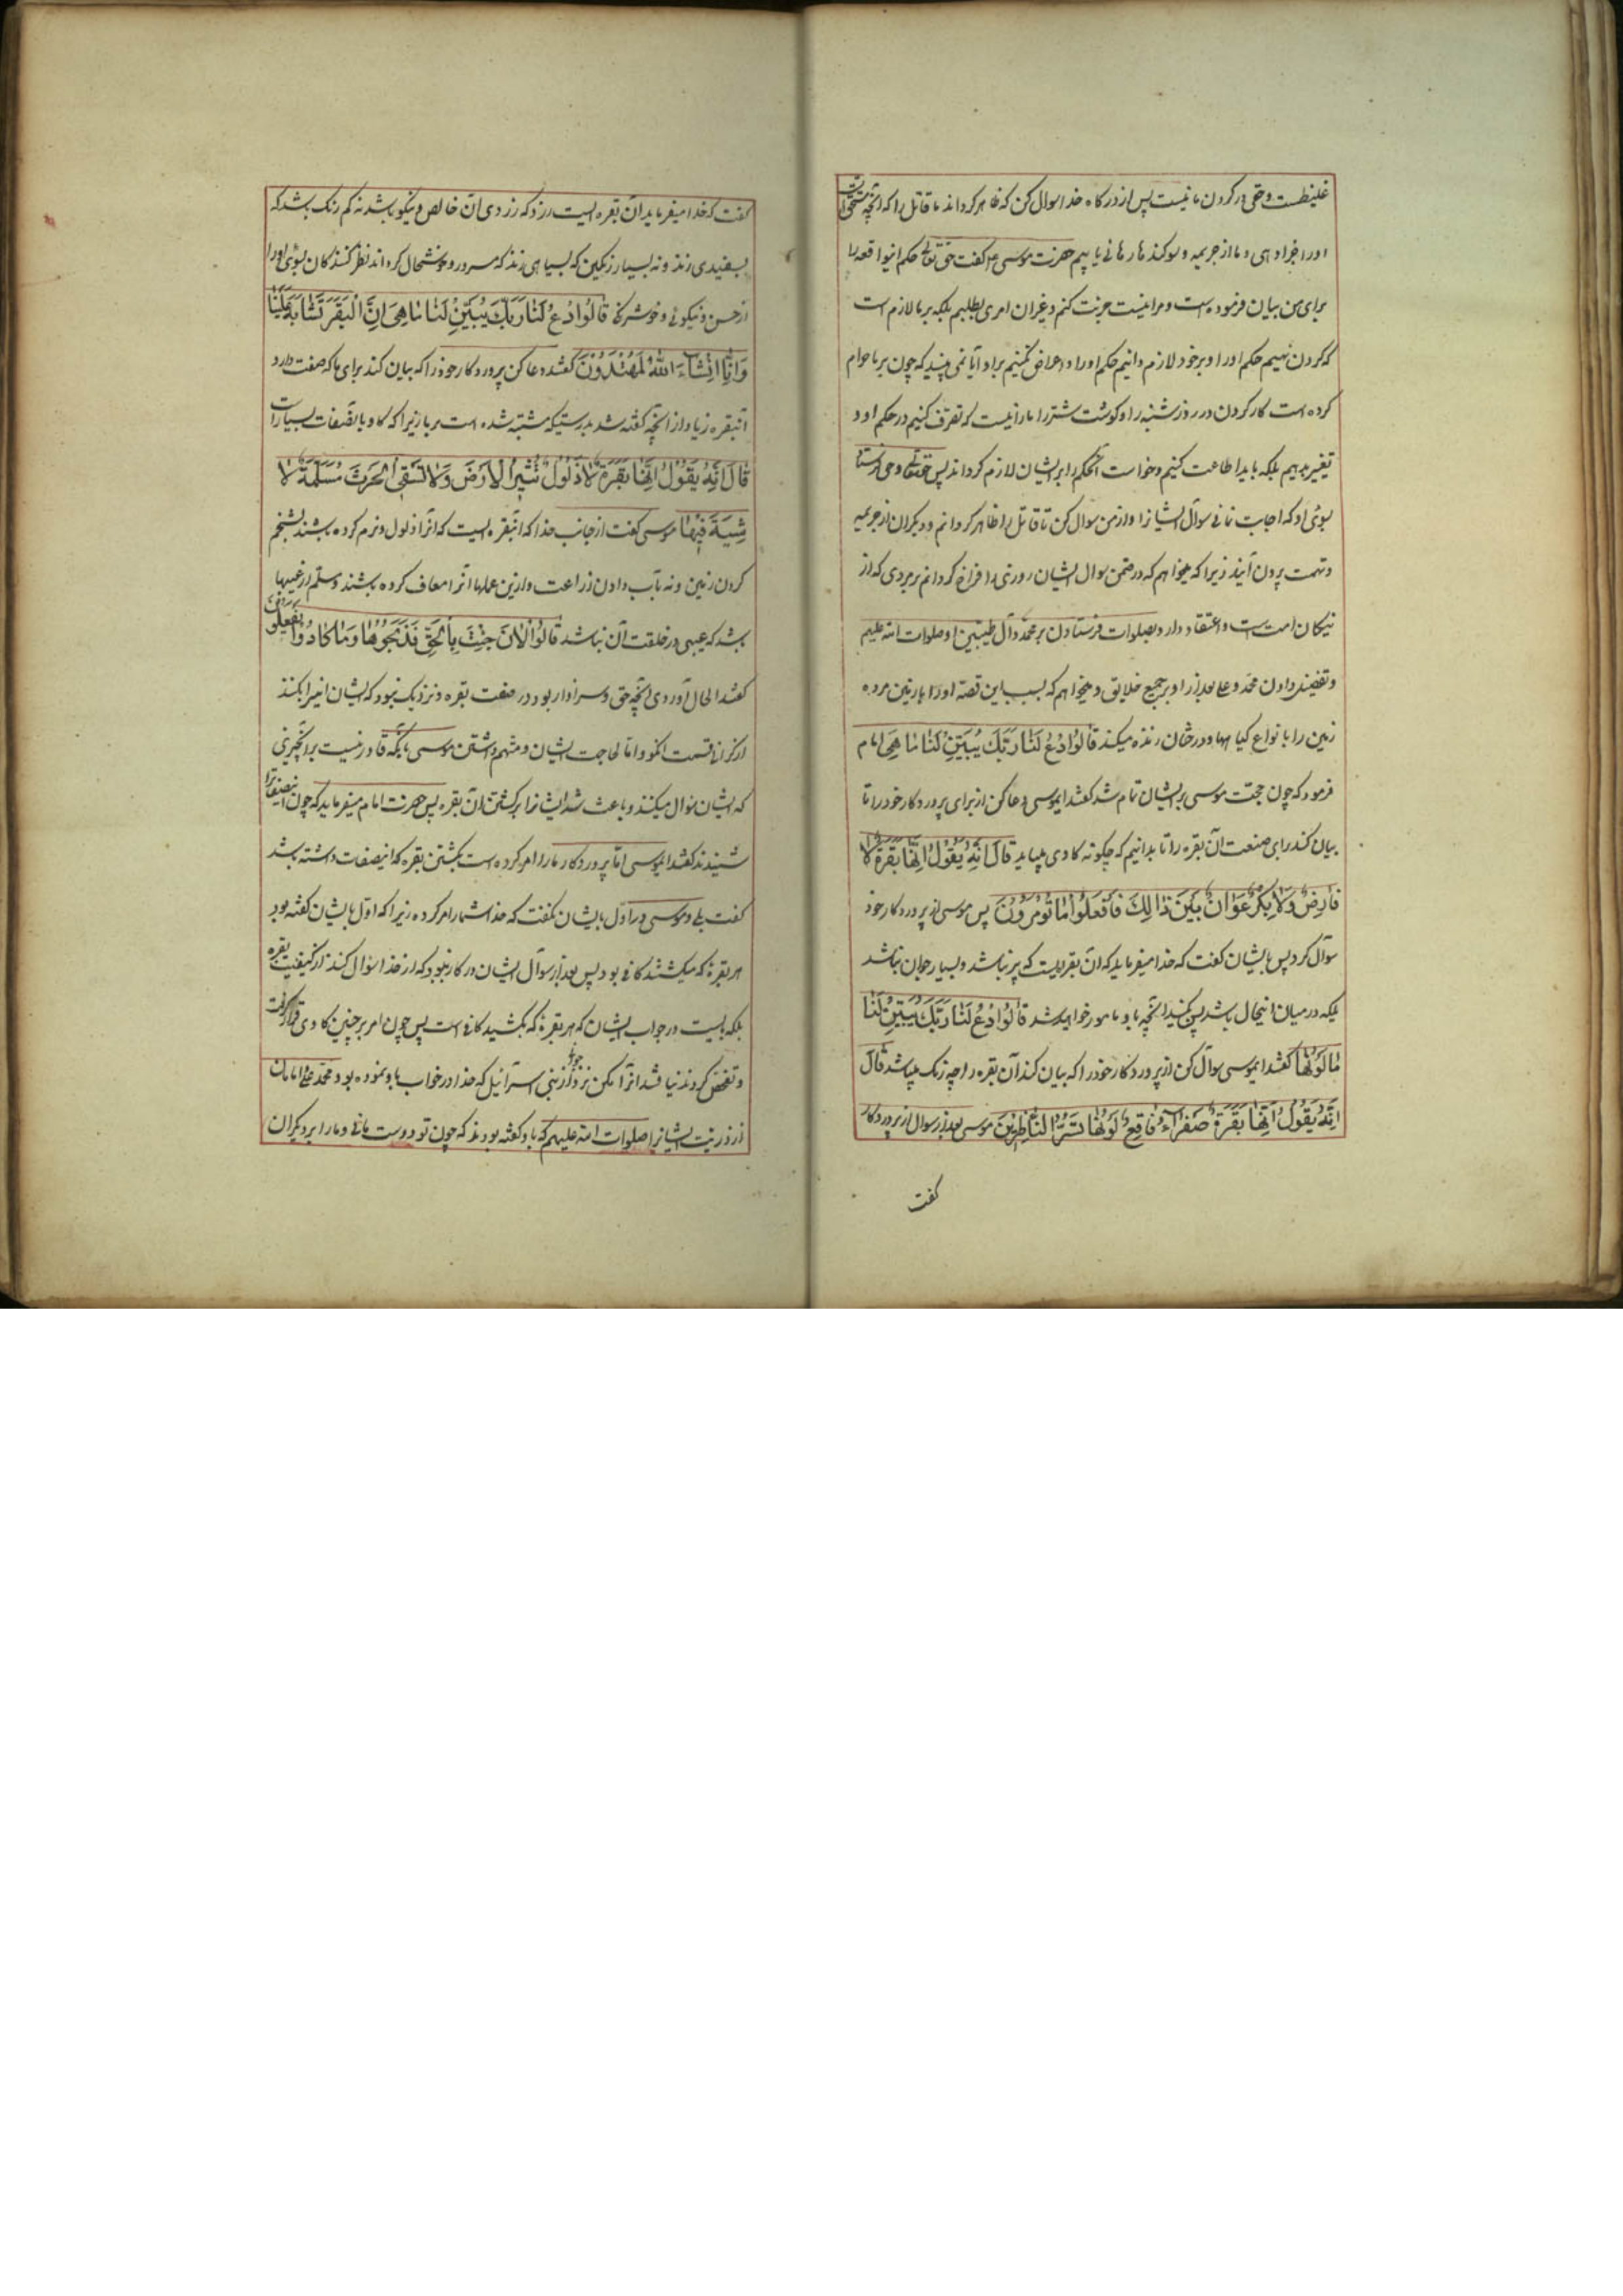 غلیظست و حقی در کردن ما نیست پس از درگاه خدا سوال کن که ظاهر گرداند ما قاتل را که آنچه مستحق آنست
او را جزا دهی و ما از جریمه و سوکند ها رهائی یابیم حضرت موسی ع گفت حق تعالی حکم اینواقعه را
برای من بیان فرموده است و مرا نیست جرئت کنم و غیر آن امری بطلبم بلکه بر ما لازم است
که گردن نهیم حکم او را و بر خود لازم دانیم حکم او را و اعتراض نکنیم بر او آیا نمی بینید که چون بر ما حرام
کرده است کار کردن در روز شنبه را و گوشت شتر را ما را نیست که تصرف کنیم در حکم او و
تغییر بدهیم بلکه باید اطاعت کنیم و خواست آنحکم را بر ایشان لازم گرداند پس حقتعالی وحی فرستاد
بسوی او که اجابت نمائی سوآل ایشانرا و از من سوال کن تا قاتل را ظاهر گردانم و دیگران از جریمه
و تهمت بیرون آیند زیرا که میخواهم که در ضمن سوال ایشان روزی را فراخ گردانم بر مردی که از
نیکان امت تست و اعتقاد دارد بصلوات فرستادن بر محمد و آل طیبین او صلوات الله علیهم
و تفضیل دادن محمد و علی بعد از او بر جمیع خلایق و میخواهم که بسبب این قصه او را
زمین را بانواع گیاهها و درختان زنده میکند قالوا ادع لنا ربک یبین لنا ما هی امام
فرمود که چون حجت موسی بر ایشان تمام شد گفتند ایموسی دعا کن از برای پروردگار خود را تا
بیان کند برای صنعت آن بقره را تا بدانیم که چگونه کاوی میباید قال انه یقول انها بقرة لا
فارض ولا بکر عوان بین ذالک فافعلوا ما تؤمرون پس موسی از پروردگار خود
سوآل کرد پس بایشان گفت که خدا میفرماید که آن بقره ایست که پیر نباشد و بسیار جوان نباشد
بلکه در میان اینحال باشد پس بکنید آنچه باو مامور خواهید شد قالوا ادع لنا ربک یبین لنا
ما لونها گفتند ایموسی سوآل کن از پروردگار خود را که بیان کند آن بقره را چه رنگ میباشد قال
انه یقول انها بقرة صفرآء فاقع لونها تسر الناظرین موسی بعد از سوال از پروردگار
گفت
گفت که خدا میفرماید آن بقره ایست زرد که زردی آن خالص و نیکو باشد نه کم رنگ باشد که
بسفیدی زند و نه بسیار رنگین که بسیاهی زند که مسرور و خوشحال گرداند نظر کنندگان بسوی او را
از حسن و نیکوئی و خوشرنگی قالوا ادع لنا ربک یبین لنا ما هی ان البقر تشابه علینا
وانا انشاء الله لمهتدون گفتند دعا کن پروردگار خود را که بیان کند برای ما که صفت دارد
آنبقره زیاد از آنچه گفته شد بدرستیکه مشتبه شده است بر ما زیرا که کاو باینصفات بسیار است
قال انه یقول انها بقرة لا ذلول تثیر الارض ولا تسقی الحرث مسلمة لا
شیة فیها موسی گفت از جانب خدا که آنبقره ایست که آنرا ذلول و نرم کرده باشند بشخم
کردن زمین و نه بآب دادن زراعت و از این عملها آنرا معاف کرده باشند و مسلّم از عیبها
باشد که عیبی در خلقت آن نباشد قالوا الآن جئت بالحق فذبحوها وما کادوا یفعلون
گفتند الحال آوردی آنچه حق و سزاوار بود در صفت بقره و نزدیک نبود که ایشان اینرا بکنند
از گرانی قیمت و اما لجاجت ایشان و متهم داشتن موسی بآنکه قادر نیست بر آنچیزی
که ایشان سوال میکنند باعث شد ایشانرا بر کشتن آن بقره پس حضرت امام میفرماید که چون اینصفاترا
شنیدند گفتند ایموسی اما پروردگار ما را امر کرده است بکشتن بقره که اینصفات داشته باشد
گفت بلی و موسی در اول بایشان نگفت که خدا شما را امر کرده زیرا که اول بایشان گفته بود
هر بقره که میکشتند کافی بود پس بعد از سوآل ایشان در کار نبود که از خدا سوال کند از کیفیت بقره
بلکه بایست در جواب ایشان که هر بقره که بکشید کافی است پس چون امر بر چنین کاوی قرار گرفت
و تفحص کردند نیافتند آنرا مگر نزد جوانی از بنی اسرآئیل که خدا در خواب باو نموده بود محمد و علی و امامان
از ذریت ایشانرا صلوات الله علیهم که باو گفته بودند که چون تو دوست مائی و ما را بر دیگران